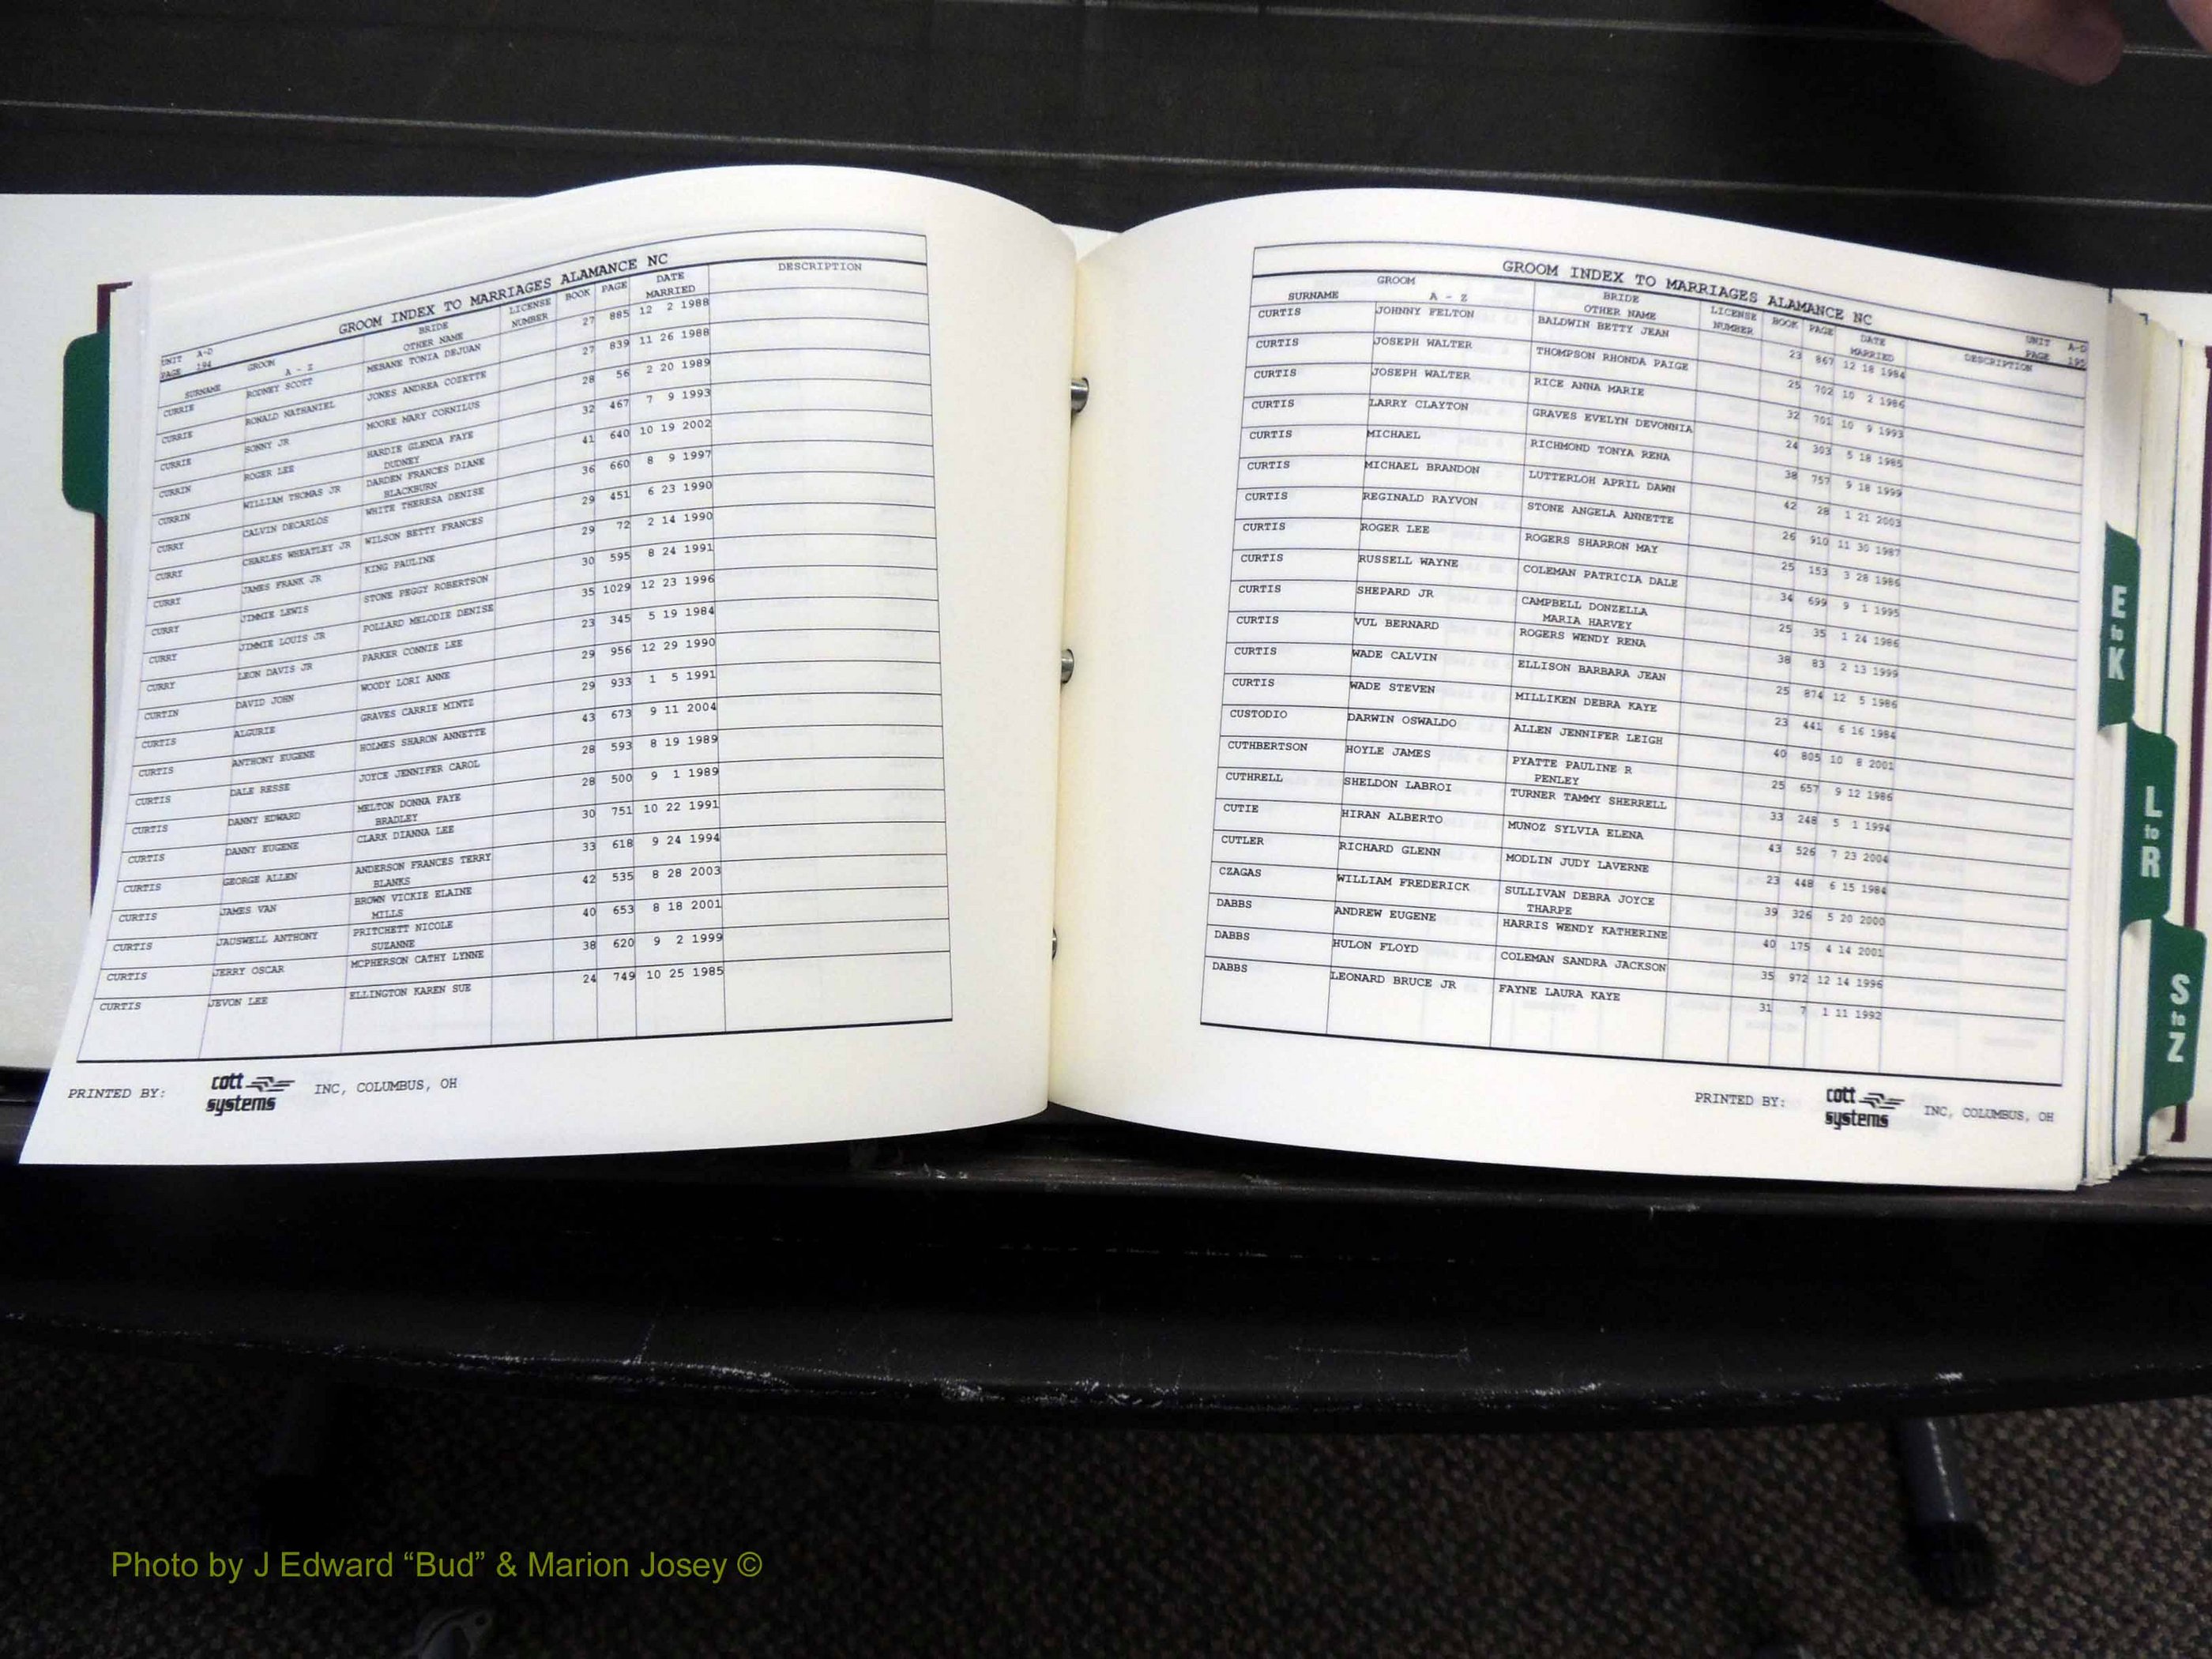 GROOM INDEX TO MARRIAGES ALAMANCE NC
UNIT A-D
PAGE 194
SURNAME GROOM A - Z BRIDE OTHER NAME LICENSE NUMBER BOOK PAGE DATE MARRIED DESCRIPTION
CURRIE RODNEY SCOTT MEBANE TONIA DEJUAN 27 885 12 2 1988
CURRIE RONALD NATHANIEL JONES ANDREA COZETTE 27 839 11 26 1988
CURRIE SONNY JR MOORE MARY CORNILUS 28 56 2 20 1989
CURRIN ROGER LEE HARDIE GLENDA FAYE 32 467 7 9 1993
DUDNEY
CURRIN WILLIAM THOMAS JR DARDEN FRANCES DIANE 41 640 10 19 2002
BLACKBURN
CURRY CALVIN DECARLOS WHITE THERESA DENISE 36 660 8 9 1997
CURRY CHARLES WHEATLEY JR WILSON BETTY FRANCES 29 451 6 23 1990
CURRY JAMES FRANK JR KING PAULINE 29 72 2 14 1990
CURRY JIMMIE LEWIS STONE PEGGY ROBERTSON 30 595 8 24 1991
CURRY JIMMIE LOUIS JR POLLARD MELODIE DENISE 35 1029 12 23 1996
CURRY LEON DAVIS JR PARKER CONNIE LEE 23 345 5 19 1984
CURTIN DAVID JOHN WOODY LORI ANNE 29 956 12 29 1990
CURTIS ALGURIE GRAVES CARRIE MINTZ 29 933 1 5 1991
CURTIS ANTHONY EUGENE HOLMES SHARON ANNETTE 43 673 9 11 2004
CURTIS DALE RESSE JOYCE JENNIFER CAROL 28 593 8 19 1989
CURTIS DANNY EDWARD MELTON DONNA FAYE 28 500 9 1 1989
BRADLEY
CURTIS DANNY EUGENE CLARK DIANNA LEE 30 751 10 22 1991
CURTIS GEORGE ALLEN ANDERSON FRANCES TERRY 33 618 9 24 1994
BLANKS
CURTIS JAMES VAN BROWN VICKIE ELAINE 42 535 8 28 2003
MILLS
CURTIS JAUSWELL ANTHONY PRITCHETT NICOLE 40 653 8 18 2001
SUZANNE
CURTIS JERRY OSCAR MCPHERSON CATHY LYNNE 38 620 9 2 1999
CURTIS JEVON LEE ELLINGTON KAREN SUE 24 749 10 25 1985
PRINTED BY: cott systems INC, COLUMBUS, OH
GROOM INDEX TO MARRIAGES ALAMANCE NC
UNIT A-D
PAGE 195
SURNAME GROOM A - Z BRIDE OTHER NAME LICENSE NUMBER BOOK PAGE DATE MARRIED DESCRIPTION
CURTIS JOHNNY FELTON BALDWIN BETTY JEAN 23 867 12 18 1984
CURTIS JOSEPH WALTER THOMPSON RHONDA PAIGE 25 702 10 2 1986
CURTIS JOSEPH WALTER RICE ANNA MARIE 32 701 10 9 1993
CURTIS LARRY CLAYTON GRAVES EVELYN DEVONNIA 24 303 5 18 1985
CURTIS MICHAEL RICHMOND TONYA RENA 38 757 9 18 1999
CURTIS MICHAEL BRANDON LUTTERLOH APRIL DAWN 42 28 1 21 2003
CURTIS REGINALD RAYVON STONE ANGELA ANNETTE 26 910 11 30 1987
CURTIS ROGER LEE ROGERS SHARRON MAY 25 153 3 28 1986
CURTIS RUSSELL WAYNE COLEMAN PATRICIA DALE 34 699 9 1 1995
CURTIS SHEPARD JR CAMPBELL DONZELLA 25 35 1 24 1986
MARIA HARVEY
CURTIS VUL BERNARD ROGERS WENDY RENA 38 83 2 13 1999
CURTIS WADE CALVIN ELLISON BARBARA JEAN 25 874 12 5 1986
CURTIS WADE STEVEN MILLIKEN DEBRA KAYE 23 441 6 16 1984
CUSTODIO DARWIN OSWALDO ALLEN JENNIFER LEIGH 40 805 10 8 2001
CUTHBERTSON HOYLE JAMES PYATTE PAULINE R 25 657 9 12 1986
PENLEY
CUTHRELL SHELDON LABROI TURNER TAMMY SHERRELL 33 248 5 1 1994
CUTIE HIRAN ALBERTO MUNOZ SYLVIA ELENA 43 526 7 23 2004
CUTLER RICHARD GLENN MODLIN JUDY LAVERNE 23 448 6 15 1984
CZAGAS WILLIAM FREDERICK SULLIVAN DEBRA JOYCE 39 326 5 20 2000
THARPE
DABBS ANDREW EUGENE HARRIS WENDY KATHERINE 40 175 4 14 2001
DABBS HULON FLOYD COLEMAN SANDRA JACKSON 35 972 12 14 1996
DABBS LEONARD BRUCE JR FAYNE LAURA KAYE 31 7 1 11 1992
PRINTED BY: cott systems INC, COLUMBUS, OH
E to K
L to R
S to Z
Photo by J Edward “Bud” & Marion Josey ©